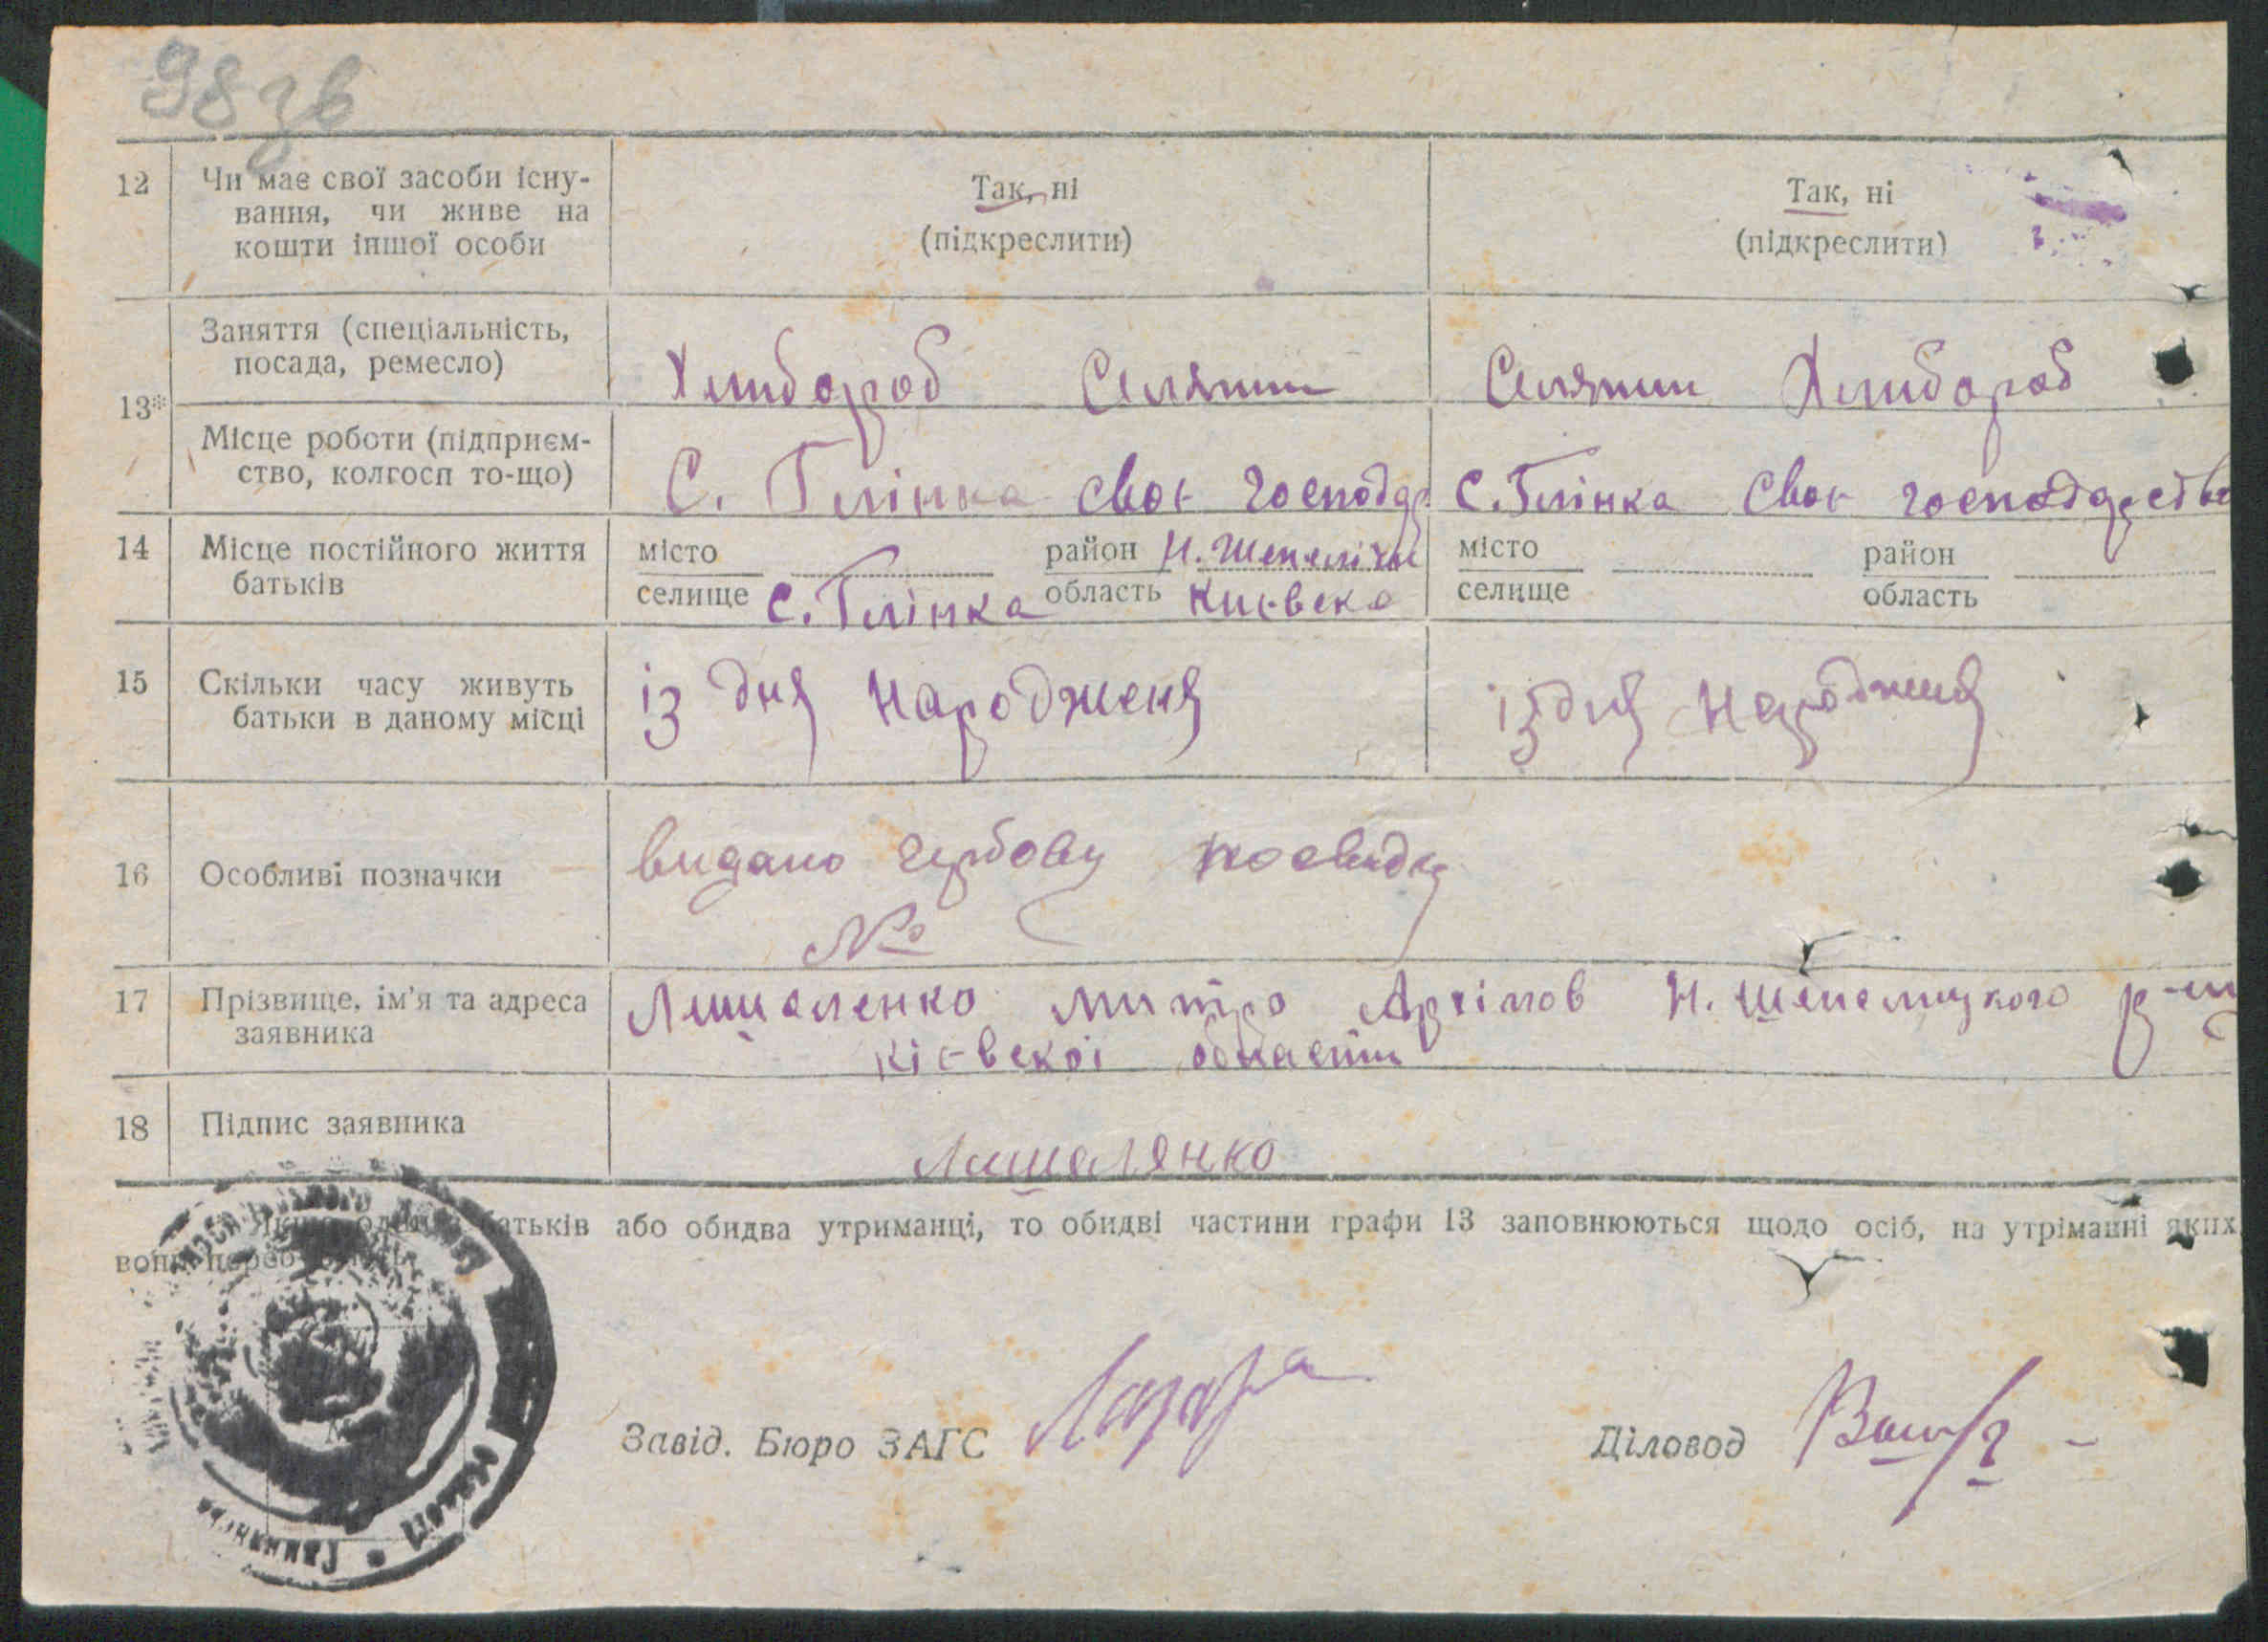 98 зв
12 Чи має свої засоби існу- Так, ні Так, ні
вання, чи живе на (підкреслити) (підкреслити)
кошти іншої особи
13* Заняття (спеціальність,
посада, ремесло) Хлибороб Селянин Селянин Хлибороб
Місце роботи (підприєм-
ство, колгосп то-що) С. Глінка своє господар С. Глінка своє господарство
14 Місце постійного життя місто район Н. Шепеличи місто район
батьків селище С. Глінка область Києвска селище область
15 Скільки часу живуть із дня народженя із дня народженя
батьки в даному місці
16 Особливі позначки видано гербову посвидку
№
17 Прізвище, ім'я та адреса Лишаленко Митро Архіпов Н. Шепелицкого р-ну
заявника Кієвскоі області
18 Підпис заявника Лишалянко
Якщо один з батьків або обидва утриманці, то обидві частини графи 13 заповнюються щодо осіб, на утріманні яких
вони перебувають.
Завід. Бюро ЗАГС Діловод